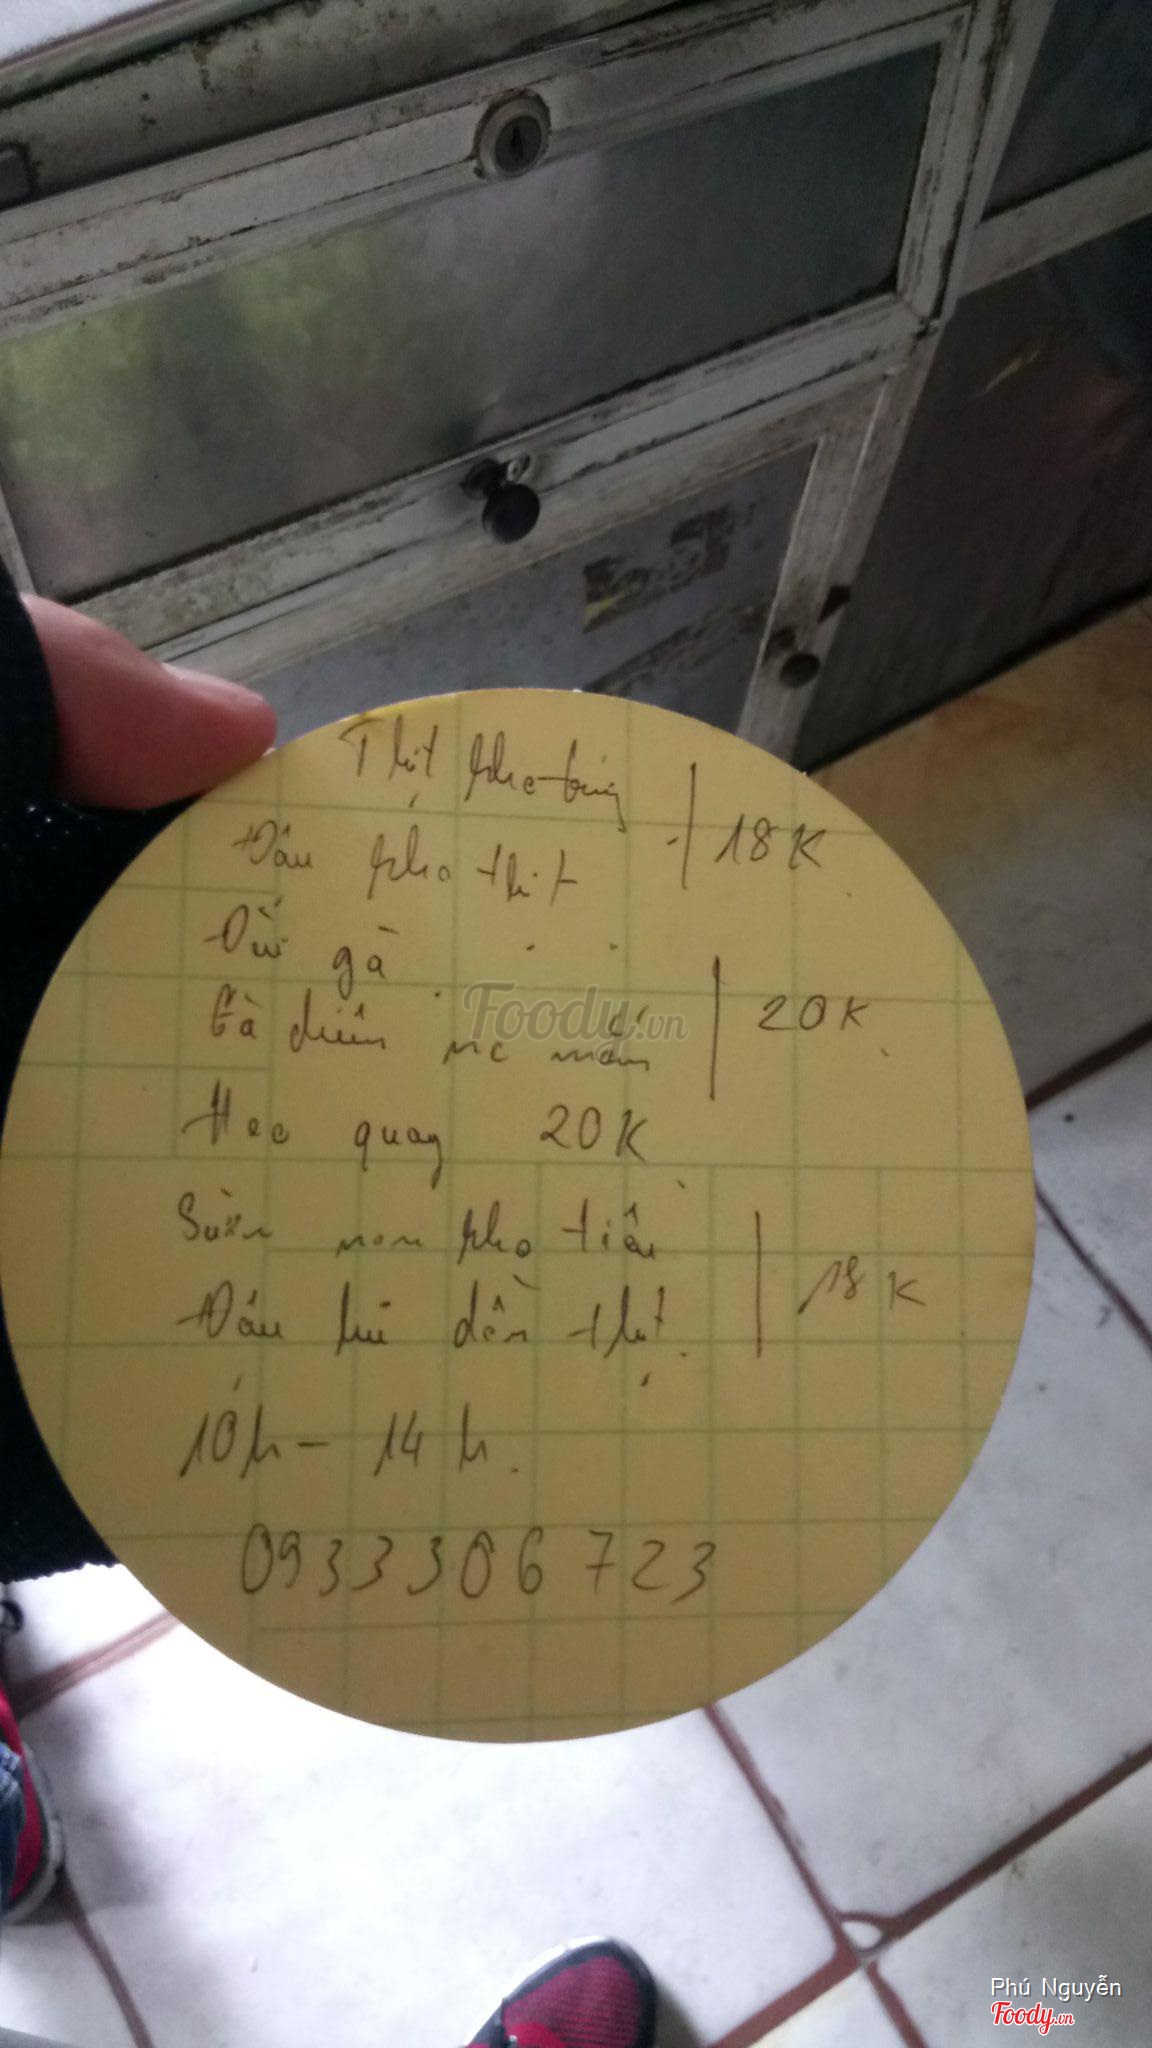 Thịt kho trứng
Đậu kho thịt
18K
Đùi gà
Gà chiên nc mắm
20K
Heo quay 20K
Sườn non kho tiêu
Đậu hủ dồn thịt
18K
10h - 14h.
0933306723
Foody.vn
Phú Nguyễn
Foody.vn